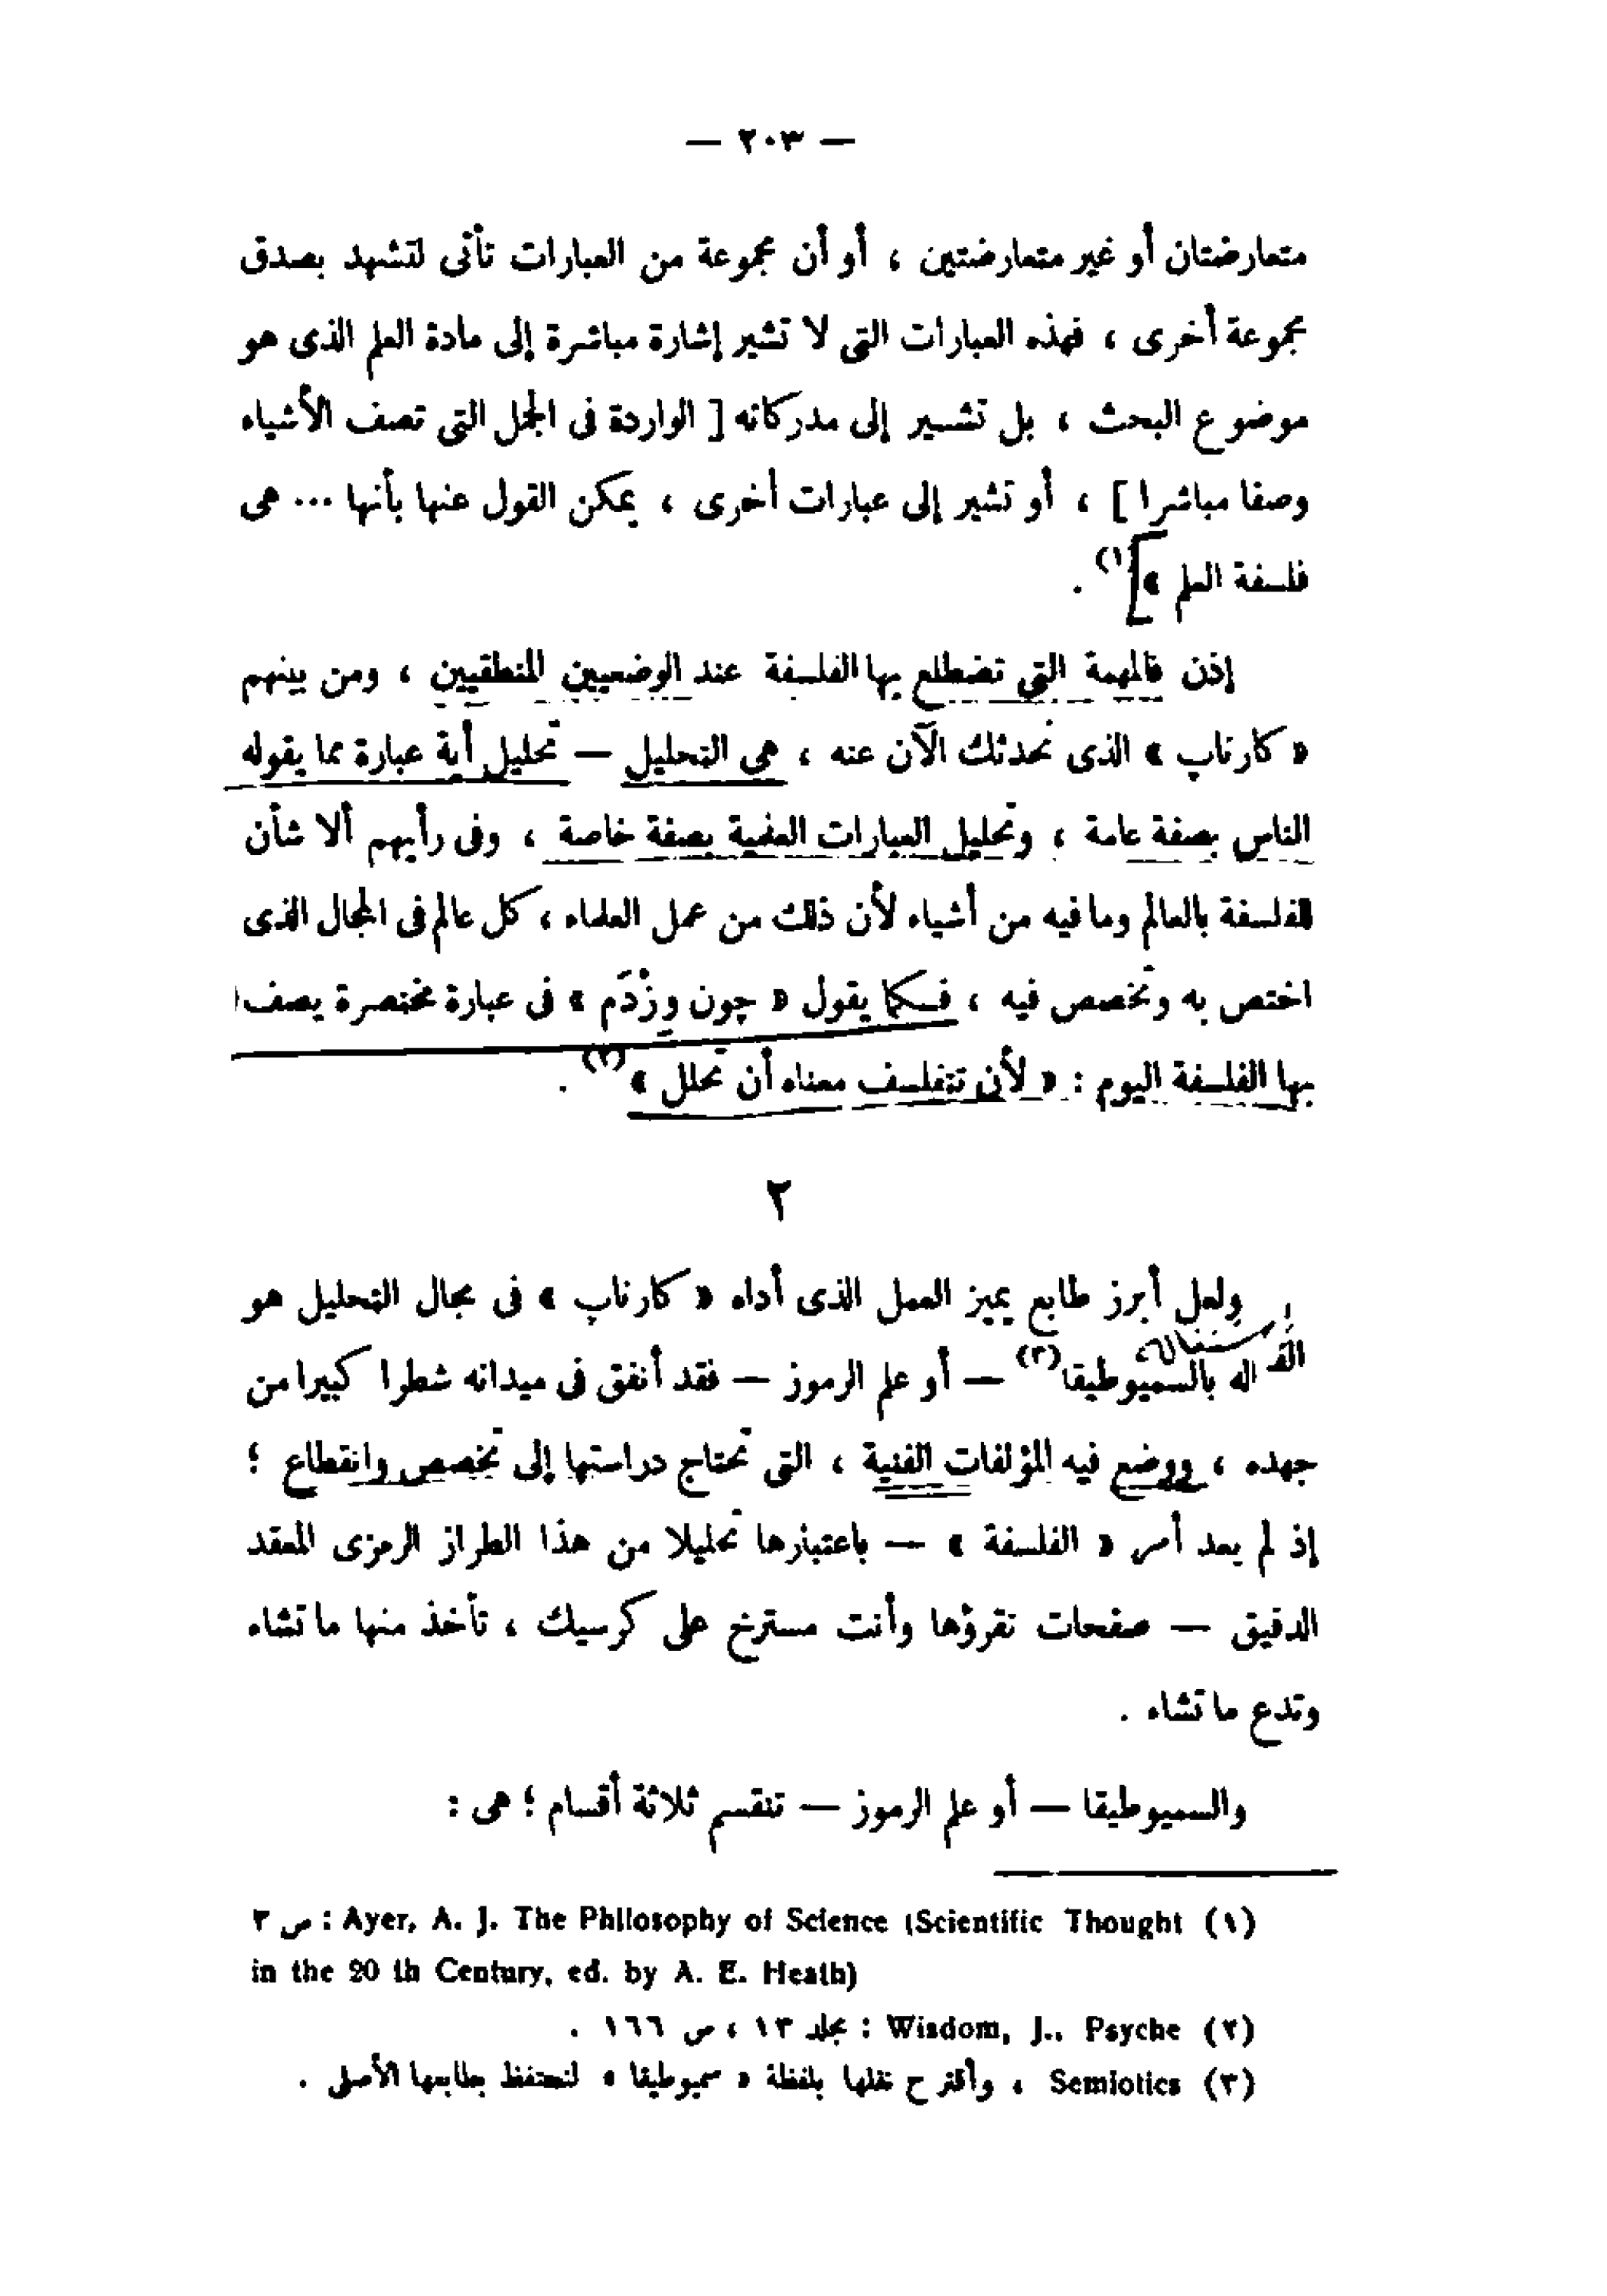 — ٢٠٣ —
متعارضتان أو غير متعارضتين ، أو أن مجموعة من العبارات تأتى لتشهد بصدق
مجموعة أخرى ، فهذه العبارات التى لا تشير إشارة مباشرة إلى مادة العلم الذى هو
موضوع البحث ، بل تشير إلى مدركاته [ الواردة فى الجمل التى تصف الأشياء
وصفا مباشرا ] ، أو تشير إلى عبارات أخرى ، يمكن القول عنها بأنها ... هى
فلسفة العلم »(١) .
إذن فالمهمة التى تضطلع بها الفلسفة عند الوضعيين المنطقيين ، ومن بينهم
« كارناپ » الذى نحدثك الآن عنه ، هى التحليل — تحليل أية عبارة مما يقوله
الناس بصفة عامة ، وتحليل العبارات العلمية بصفة خاصة ، وفى رأيهم ألا شأن
للفلسفة بالعالم وما فيه من أشياء لأن ذلك من عمل العلماء ، كل عالم فى المجال الذى
اختص به وتخصص فيه ، فكما يقول « چون وِزْدَم » فى عبارة مختصرة يصف
بها الفلسفة اليوم : « لأن تتفلسف معناه أن تحلل »(٢) .
٢
ولعل أبرز طابع يميز العمل الذى أداه « كارناپ » فى مجال التحليل هو
اله بالسميوطيقا(٣) — أو علم الرموز — فقد أنفق فى ميدانه شطرا كبيرا من
جهده ، ووضع فيه المؤلفات الفنية ، التى تحتاج دراستها إلى تخصص وانقطاع ؛
إذ لم يعد أمر « الفلسفة » — باعتبارها تحليلا من هذا الطراز الرمزى المعقد
الدقيق — صفحات تقرؤها وأنت مسترخ على كرسيك ، تأخذ منها ما تشاء
وتدع ما تشاء .
والسميوطيقا — أو علم الرموز — تنقسم ثلاثة أقسام ؛ هى :
(١) Ayer, A. J. The Philosophy of Science (Scientific Thought : ص ٣
in the 20 th Century, ed. by A. E. Heath)
(٢) Wisdom, J., Psyche : مجلد ١٣ ، ص ١٦٦ .
(٣) Semiotics ، وأقترح نقلها بلفظة « سميوطيقا » لتحتفظ بطابعها الأصلى .